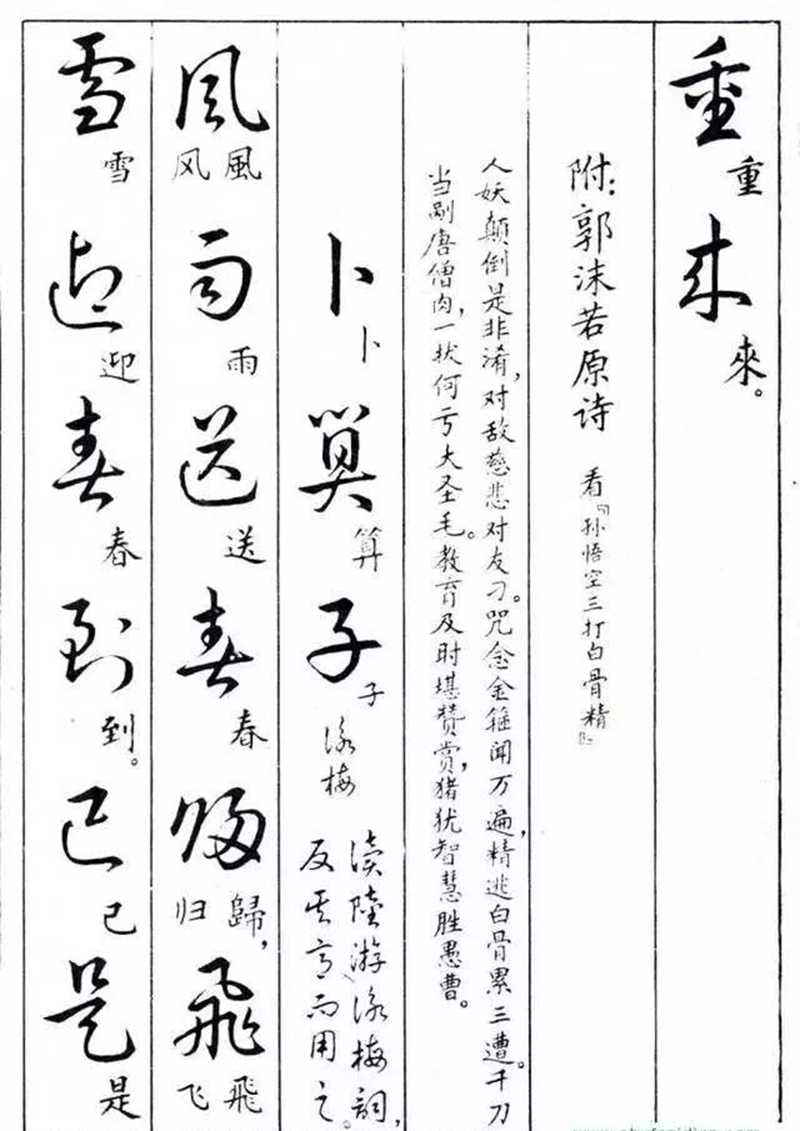 重重来來。
附：郭沫若原诗 看『孙悟空三打白骨精』
人妖颠倒是非淆，对敌慈悲对友刁。咒念金箍闻万遍，精逃白骨累三遭。千刀
当剐唐僧肉，一拔何亏大圣毛。教育及时堪赞赏，猪犹智慧胜愚曹。
卜卜算算子子 咏梅
读陆游咏梅词，
反其意而用之。
风风風雨雨送送春春归归歸，飞飞飛
雪雪迎迎春春到到。已已是是